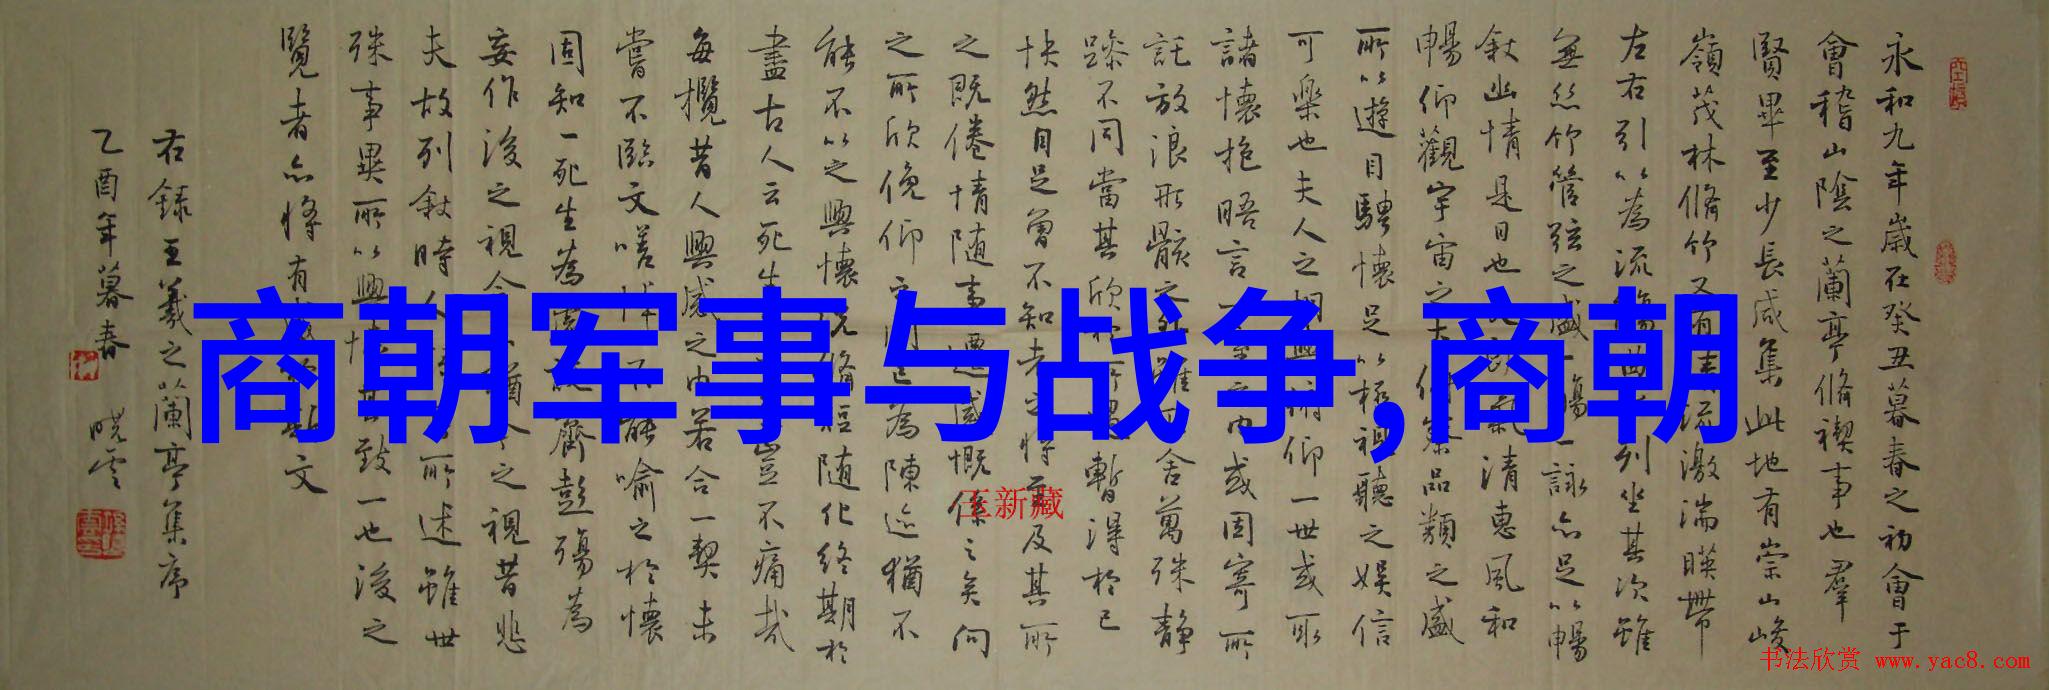 永和九年歲在癸丑暮春之初會于
會稽山陰之蘭亭脩禊事也羣
賢畢至少長咸集此地有崇山峻
嶺茂林脩竹又有清流激湍暎帶
左右引以為流觴曲列坐其次雖
無絲竹管弦之盛一觴一詠亦足以暢
敘幽情是日也氣清惠風和
暢仰觀宇宙之大俯察品類之盛
所以遊目騁懷足以極視聽之娛信
可樂也夫人之相與俯仰一世或取
諸懷抱晤言一室之內或因寄所
託放浪形骸之外雖舍萬殊靜
躁不同當其欣於所遇暫得於己
快然自足曾不知老之將至及其所
之既倦情隨事遷感慨係之矣向
之所欣俛仰之間已為陳迹猶不
能不以之興懷況脩短隨化終期於
盡古人云死生豈不痛哉
每攬昔人興感之由若合一契未
嘗不臨文嗟悼不能喻之於懷
固知一死生為虛誕齊彭殤為
妄作後之視今猶今之視昔悲
夫故列敘時人所述雖世
殊事異所以興懷其致一也後之
覽者亦將有感斯文
右錄王羲之蘭亭集序
乙酉年暮春 曉雲
商朝军事与战争,商朝
王新藏
书法欣赏 www.yac8.com